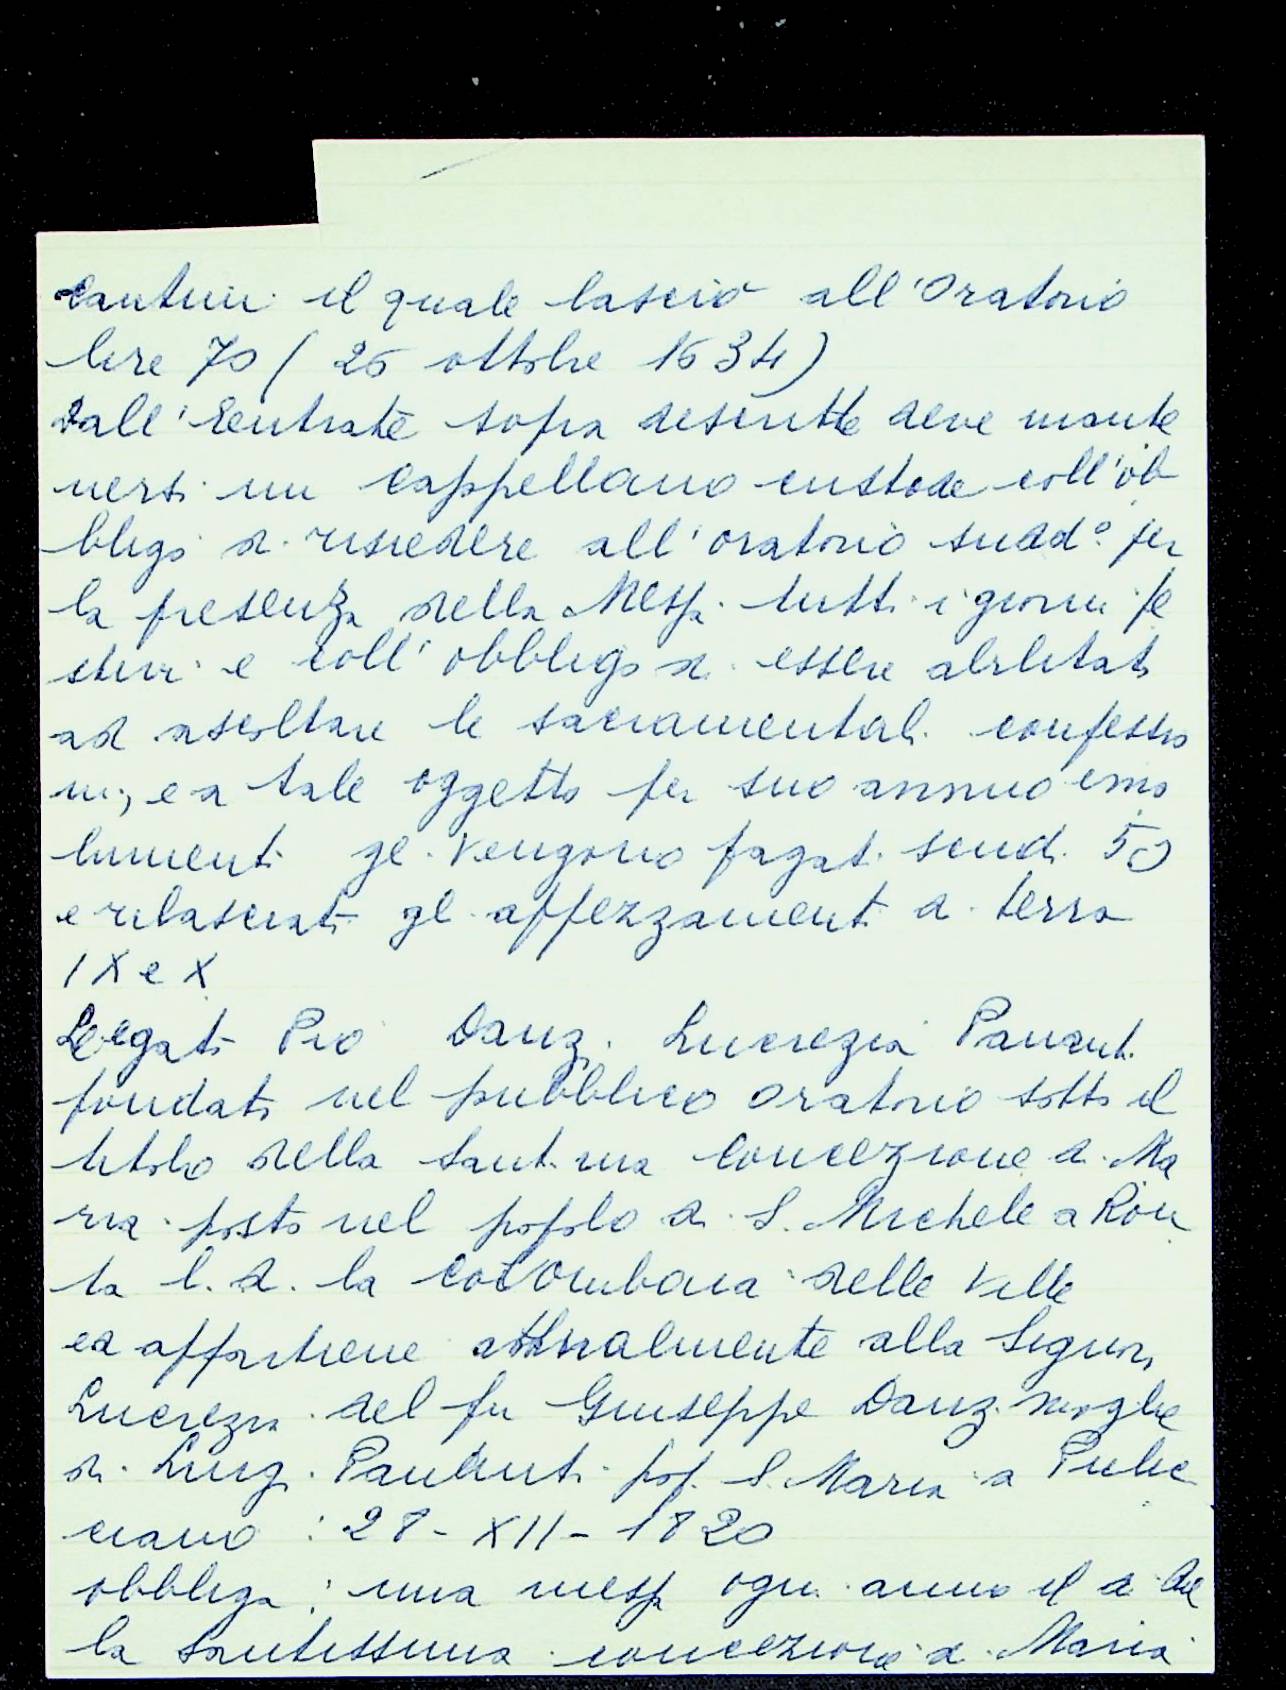 Cantini il quale lasciò all'Oratorio
lire 70 (25 ottobre 1634)
Dall'Entrate sopra descritte deve mante
nersi un Cappellano custode coll'ob
bligo di risiedere all'oratorio sudd° per
la presenza della Messa tutti i giorni fe
stivi e coll'obbligo di essere abilitato
ad ascoltare le sacramentali confessio
ni, e a tale oggetto per suo annuo emo
lumenti gli vengono pagati scudi 50
e rilasciati gli appezzamenti di terra
IX e X
Legato Pio Danzi Lucrezia Pananti
fondato nel pubblico oratorio sotto il
titolo della Sant.ma Concezione di Ma
ria posto nel popolo di S. Michele a Ron
ta l.d. la Colombaia delle Ville
ed appartiene attualmente alla Signora
Lucrezia del fu Giuseppe Danzi moglie
di Luigi Pananti pop. S. Maria a Pulic
ciano : 28-XII-1820
obbliga : una messa ogni anno il dì del
la santissima concezione di Maria